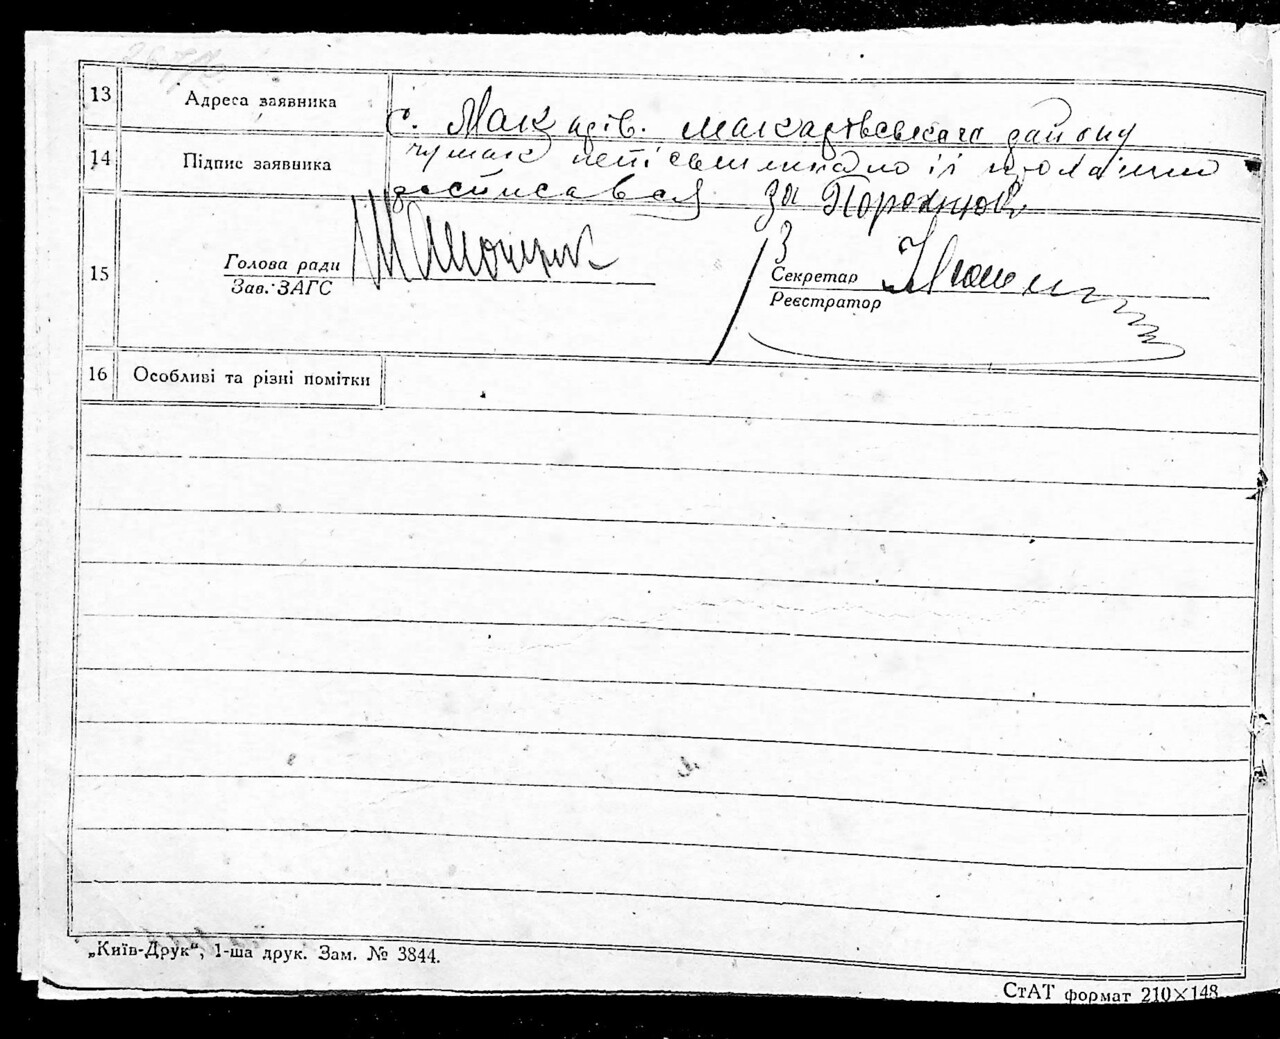 13 Адреса заявника с. Макарів. Макарівського району
14 Підпис заявника Чумак неписьменна по її проханню
росписався за
15 Голова ради
Зав. ЗАГС
Секретар
Реєстратор
16 Особливі та різні помітки
„Київ-Друк“, 1-ша друк. Зам. № 3844.
СтАТ формат 210×148